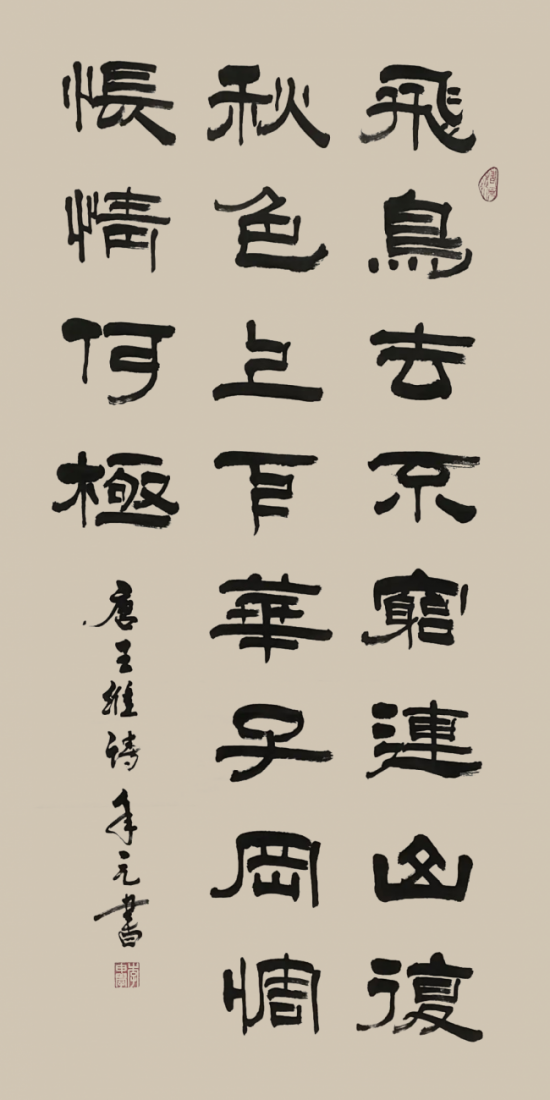 飛鳥去不窮連山復
秋色上下華子岡惆
悵情何極
唐王維詩元書